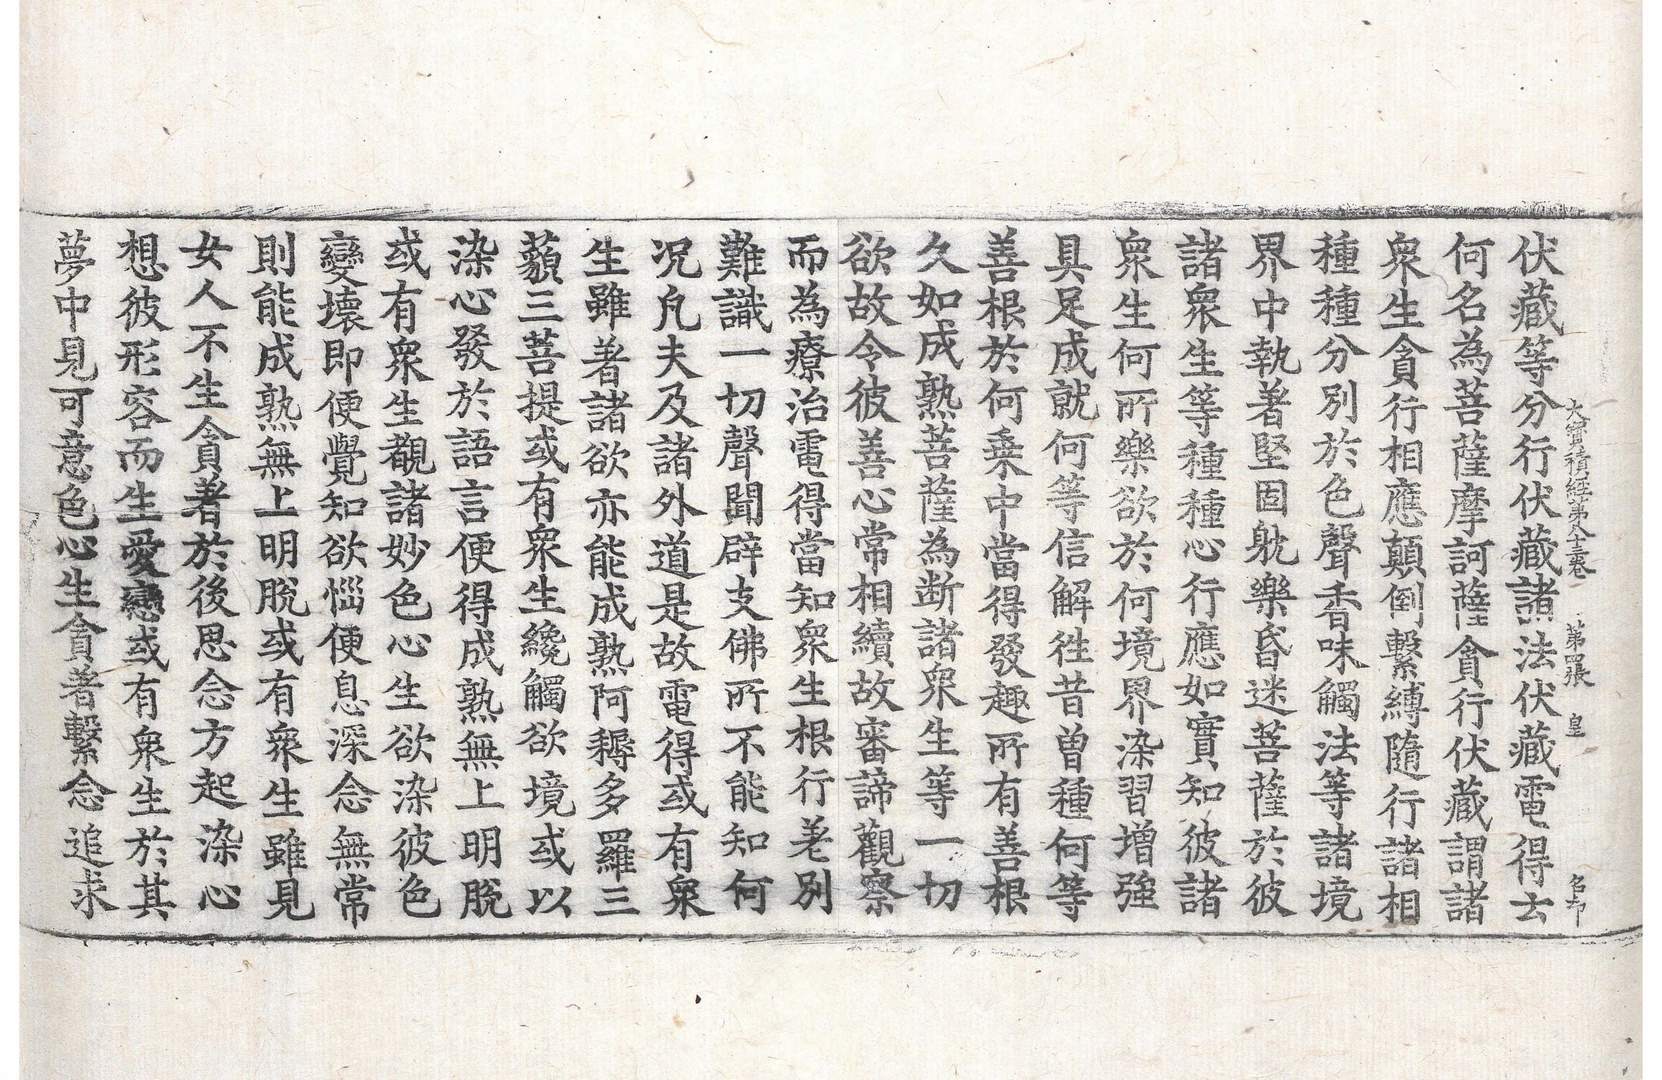 大寶積經第八十三卷 第四張 皇 名印
伏藏等分行伏藏諸法伏藏電得云
何名為菩薩摩訶薩貪行伏藏謂諸
衆生貪行相應顛倒繫縛隨行諸相
種種分別於色聲香味觸法等諸境
界中執著堅固躭樂昏迷菩薩於彼
諸衆生等種種心行應如實知彼諸
衆生何所樂欲於何境界染習增強
具足成就何等信解徃昔曾種何等
善根於何乗中當得發趣所有善根
久如成熟菩薩為断諸衆生等一切
欲故令彼善心常相續故審諦觀察
而為療治電得當知衆生根行差別
難識一切聲聞辟支佛所不能知何
况凡夫及諸外道是故電得或有衆
生雖著諸欲亦能成熟阿耨多羅三
藐三菩提或有衆生纔觸欲境或以
染心發於語言便得成熟無上明脫
或有衆生覩諸妙色心生欲染彼色
變壞即便覺知欲惱便息深念無常
則能成熟無上明脫或有衆生雖見
女人不生貪著於後思念方起染心
想彼形容而生愛戀或有衆生於其
夢中見可意色心生貪著繫念追求